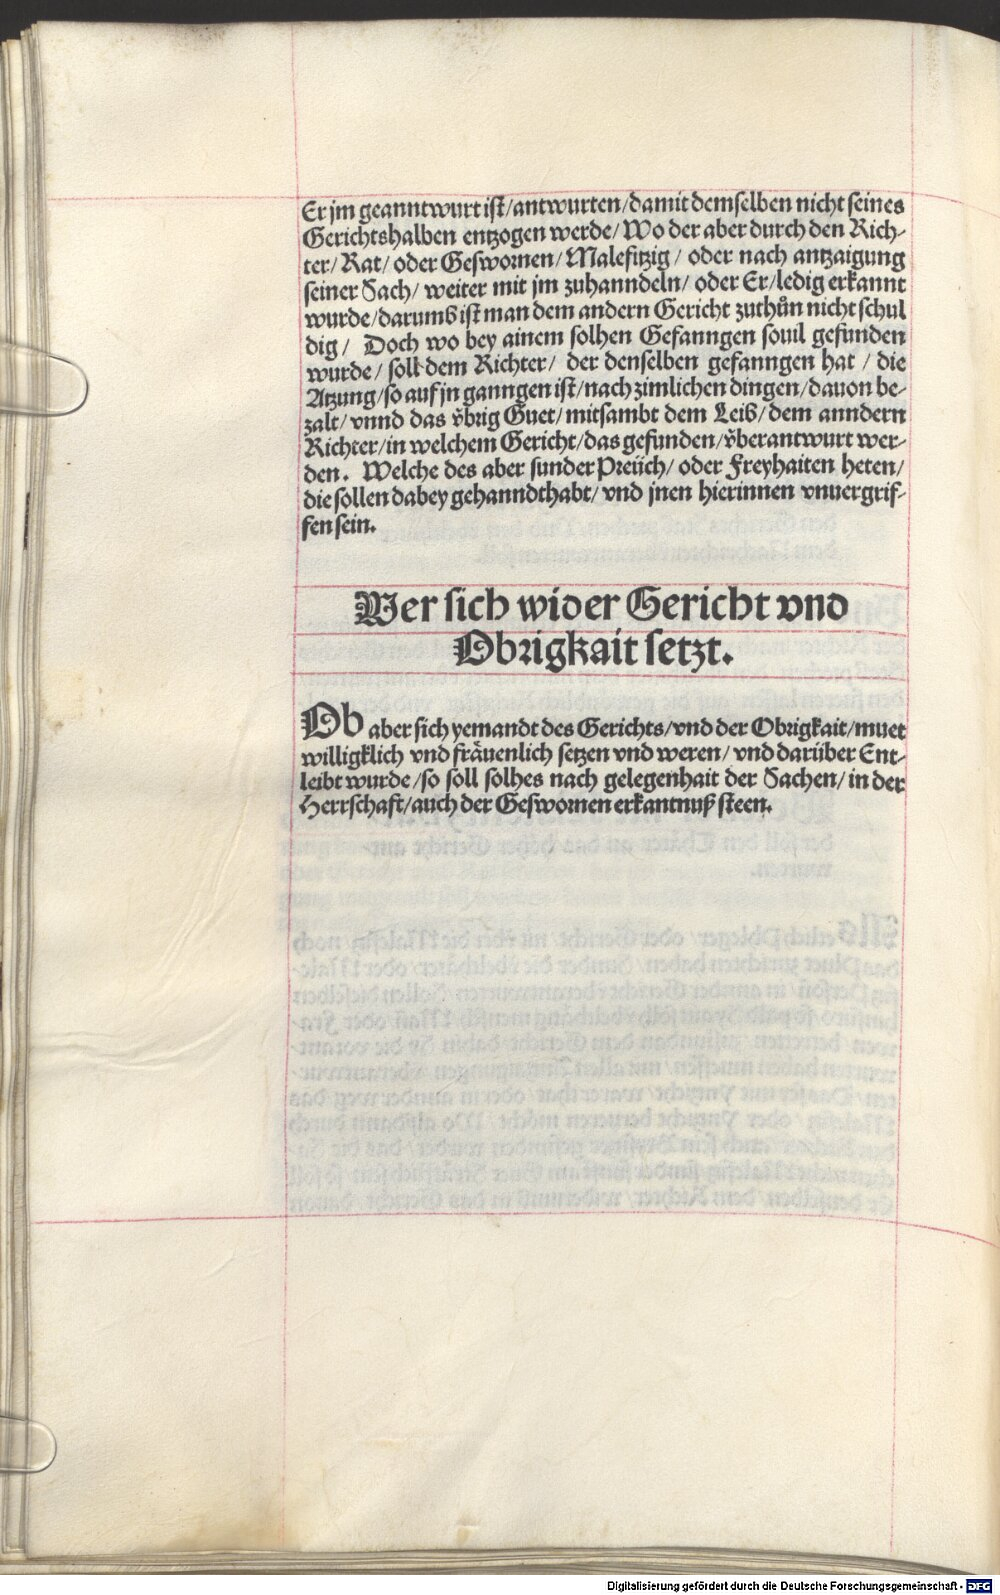 Er jm geanntwurt ist/antwurten/damit demselben nicht seines
Gerichtshalben entzogen werde/Wo der aber durch den Rich-
ter/Rat/oder Geswornen/Malefitzig/oder nach antzaigung
seiner Sach/weiter mit jm zuhanndeln/oder Er/ledig erkannt
wurde/darumb ist man dem andern Gericht zuthůn nicht schul
dig/ Doch wo bey ainem solhen Gefanngen souil gefunden
wurde/soll dem Richter/ der denselben gefanngen hat / die
Atzung/so auf jn ganngen ist/nach zimlichen dingen/dauon be-
zalt/vnnd das v̈brig Guet/mitsambt dem Leib/dem anndern
Richter/in welchem Gericht/das gefunden/v̈berantwurt wer-
den. Welche des aber sunder Preüich/oder Freyhaiten heten/
die sollen dabey gehanndthabt/vnd jnen hierinnen vnuergrif-
fen sein.
Wer sich wider Gericht vnd
Obrigkait setzt.
Ob aber sich yemandt des Gerichts/vnd der Obrigkait/muet
willigklich vnd fräuenlich setzen vnd weren/vnd darüber Ent-
leibt wurde/so soll solhes nach gelegenhait der Sachen/in der
Herrschaft/auch der Geswornen erkantnuß steen.
Digitalisierung gefördert durch die Deutsche Forschungsgemeinschaft - DFG